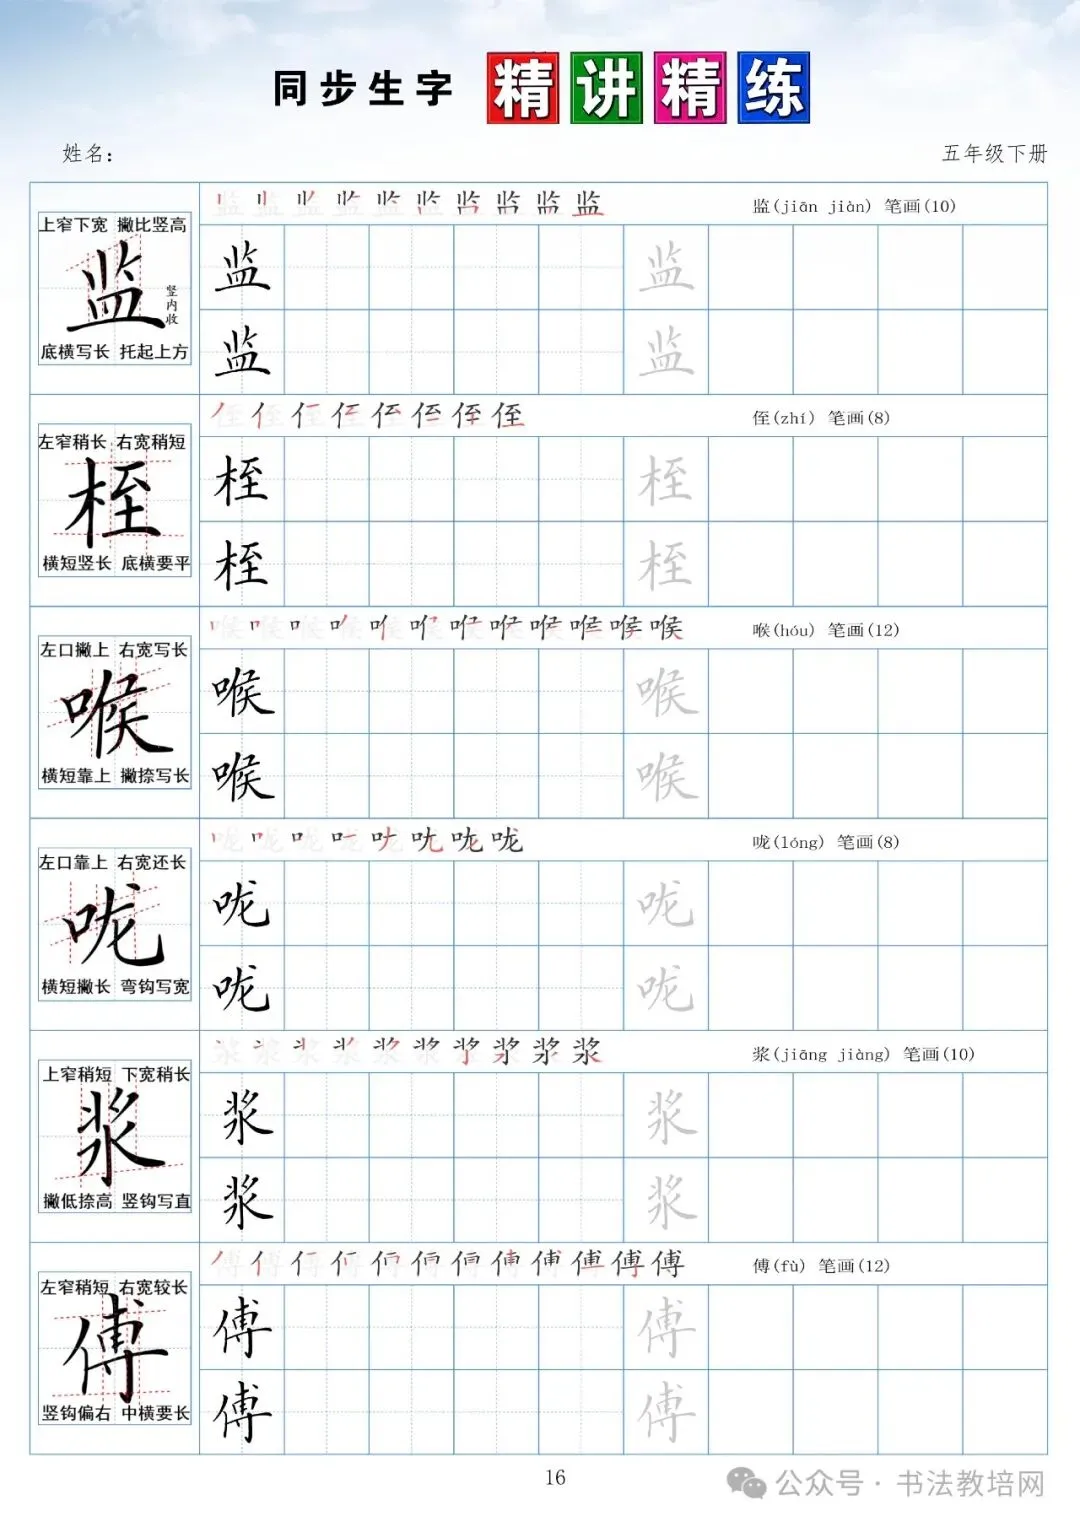 同步生字 精讲精练
姓名：
五年级下册
监 监 监 监 监 监 监 监 监 监
监(jiān jiàn) 笔画(10)
上窄下宽 撇比竖高
监
竖内收
底横写长 托起上方
监 监
监 监
侄 侄 侄 侄 侄 侄 侄 侄
侄(zhí) 笔画(8)
左窄稍长 右宽稍短
桎
横短竖长 底横要平
桎 桎
桎 桎
喉 喉 喉 喉 喉 喉 喉 喉 喉 喉 喉 喉
喉(hóu) 笔画(12)
左口撇上 右宽写长
喉
横短靠上 撇捺写长
喉 喉
喉 喉
咙 咙 咙 咙 咙 咙 咙 咙
咙(lóng) 笔画(8)
左口靠上 右宽还长
咙
横短撇长 弯钩写宽
咙 咙
咙 咙
浆 浆 浆 浆 浆 浆 浆 浆 浆 浆
浆(jiāng jiàng) 笔画(10)
上窄稍短 下宽稍长
浆
撇低捺高 竖钩写直
浆 浆
浆 浆
傅 傅 傅 傅 傅 傅 傅 傅 傅 傅 傅 傅
傅(fù) 笔画(12)
左窄稍短 右宽较长
傅
竖钩偏右 中横要长
傅 傅
傅 傅
16
公众号 · 书法教培网